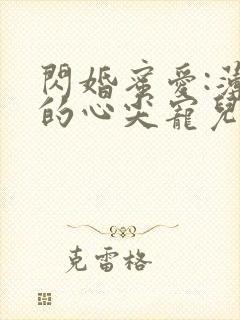 閃婚蜜愛:薄
的心尖寵兒
克雷格